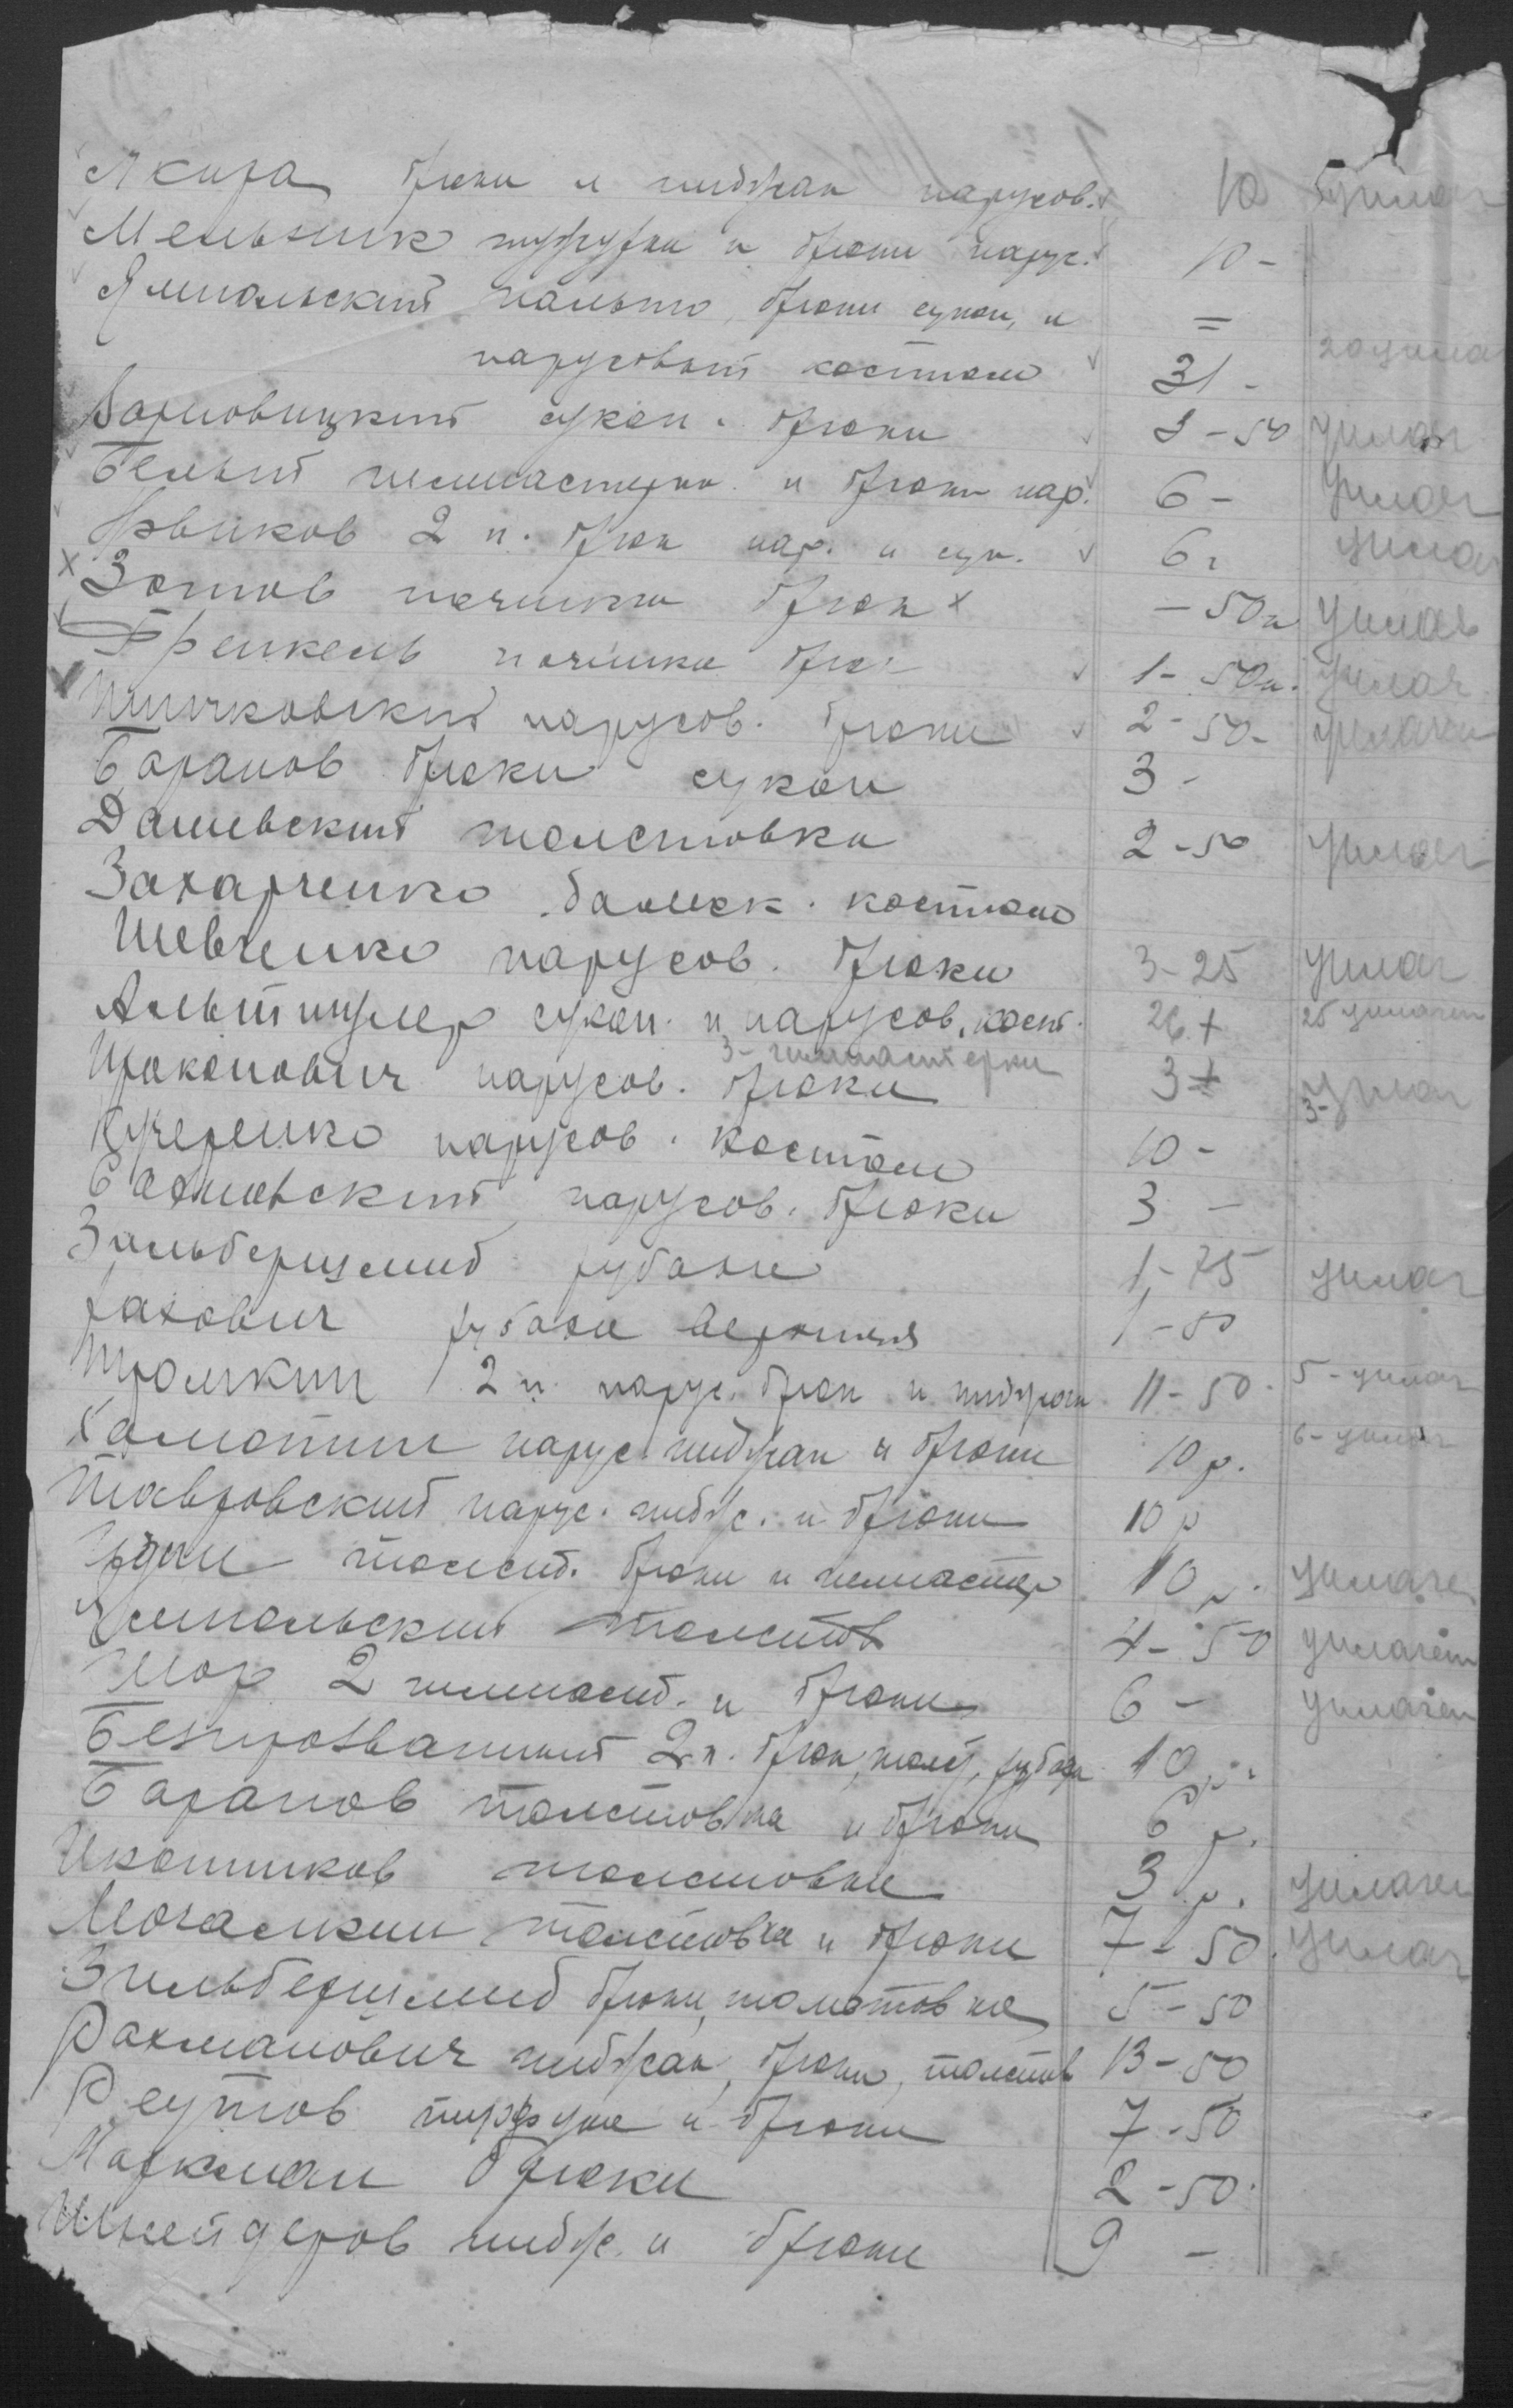 Якира брюки и пиджак парусов. 10 уплач
Мельник тужурки и брюки парус. 10 -
Ямпольский пальто, брюки сукон, и =
парусовый костюм 31 - 20 упла
сукон. брюки 3 - 50 уплач
Белый гимнастерк. и брюки пар. 6 - уплач
2 п. брюк пар. и сук. 6 упла
Зотов починка брюк х - 50к уплач
Френкель починка брюк 1 - 50к. уплач
парусов. брюки 2 - 50 - уплачен
Баранов брюки сукон 3 -
Дашевский толстовка 2 - 50 уплач
Захарченко костюм
Шевченко парусов. брюки 3 - 25 уплач
Альтшулер сукон. и парусов. кост. 26 + 25 уплачен
3 - гимнастерки
Прокопович парусов. брюки 3 + 3 - уплач
Кучеренко парусов. костюм 10 -
парусов. брюки 3 -
Зильбершмид рубахи 1 - 75 уплач
Рахович рубахи верхния 1 - 50
2 п. парус. брюк и пиджак 11 - 50 5 - уплач
Хаматин парус. пиджак и брюки 10 р. 6 - уплач
Тавровский парус. пидж. и брюки 10 р
толст. брюки и гимнастер 10 р. уплачен
Ямпольский толстов 4 - 50 уплачен
Шор 2 гимнаст. и брюки 6 - уплачен
Безпрозванный 2 п. брюк, толст, рубах 10 р.
Баранов толстовка и брюки 6 р.
Иконников толстовки 3 р. уплачен
Могалкин толстовка и брюки 7 - 50 уплач
Зильбершмид брюки, толстовка 5 - 50
Рахманович пиджак, брюки, толстов 13 - 50
Реутов и брюки 7 - 50
Маркман брюки 2 - 50
Шнейдеров пидж. и брюки 9 -